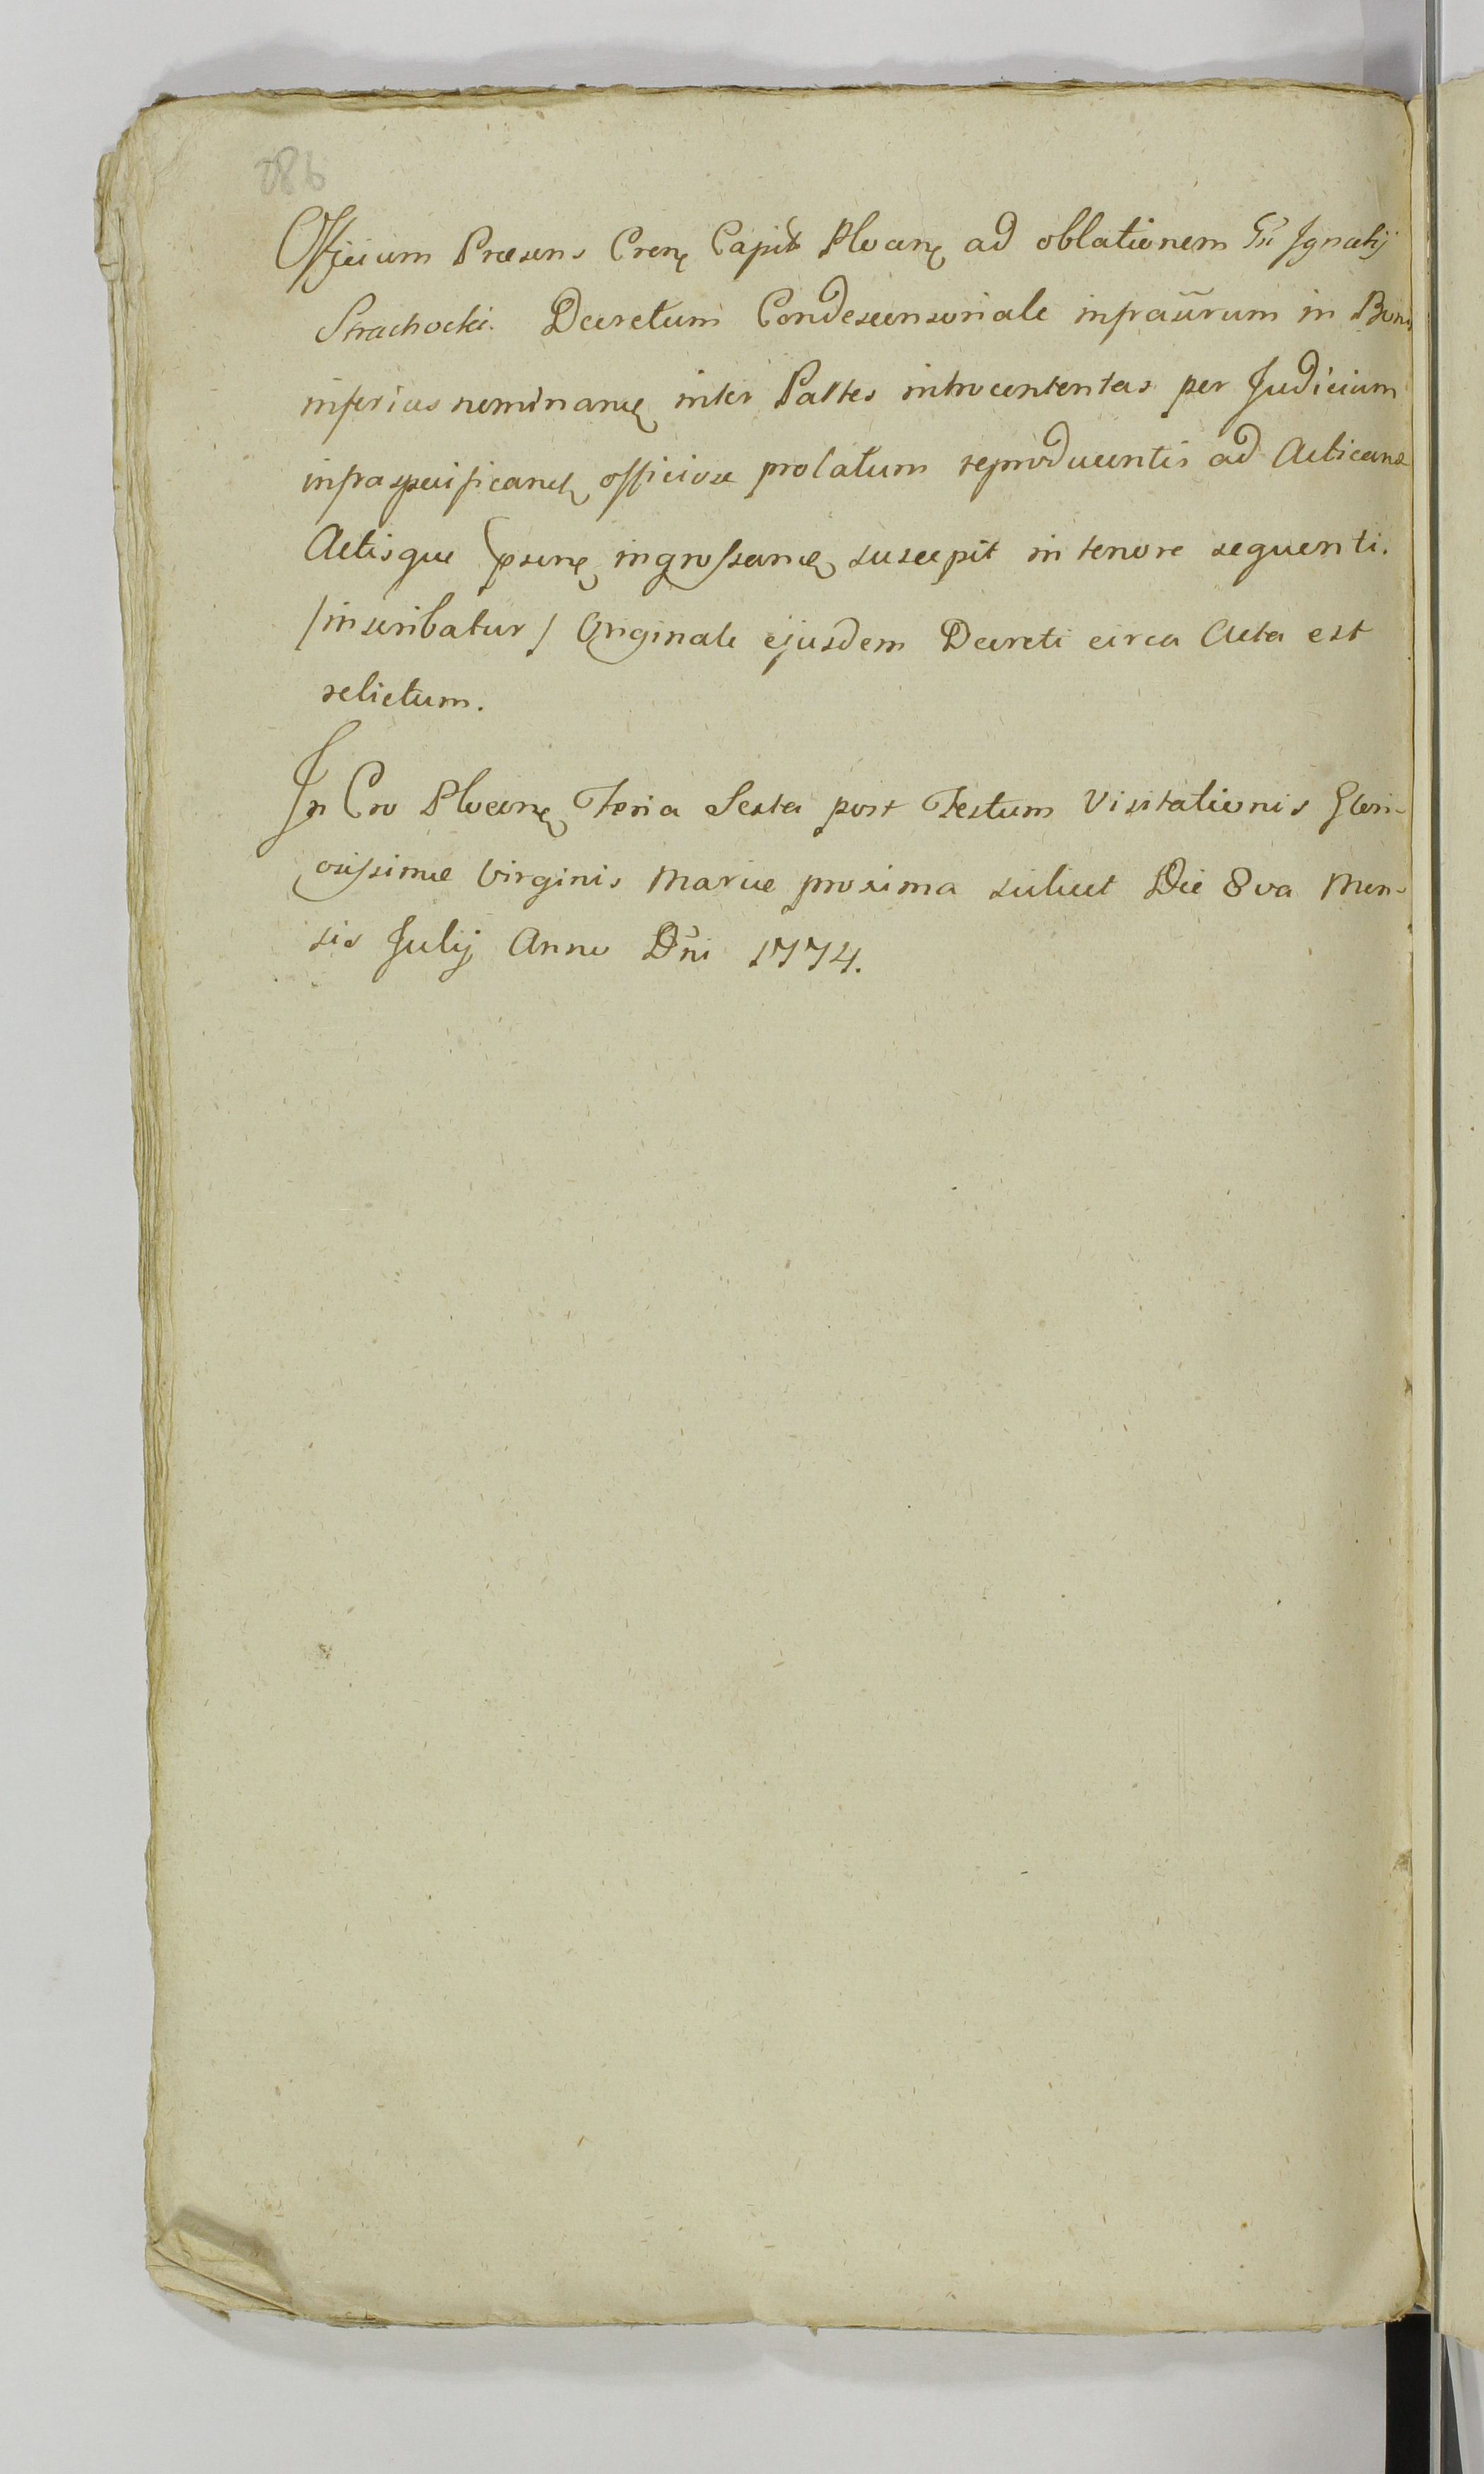 286
Officium Præsens Crens Capit Plocens ad oblationem Gsi Ignatij
Strachocki. Decretum Condescensoriale infrascrum in Bonis
inferius nominandis inter Partes introcontentas per Judicium
infraspecificandum officiose prolatum reproducentis ad Acticandum
Actisque psens ingrossandum suscepit in tenore sequenti.
/inscribatur/ Originale ejusdem Decreti circa Acta est
relictum.
In Cro Plocens Feria Sexta post Festum Visitationis Glori-
osissimæ Virginis Mariæ proxima scilicet Die 8va Men-
sis Julij Anno Dni 1774.